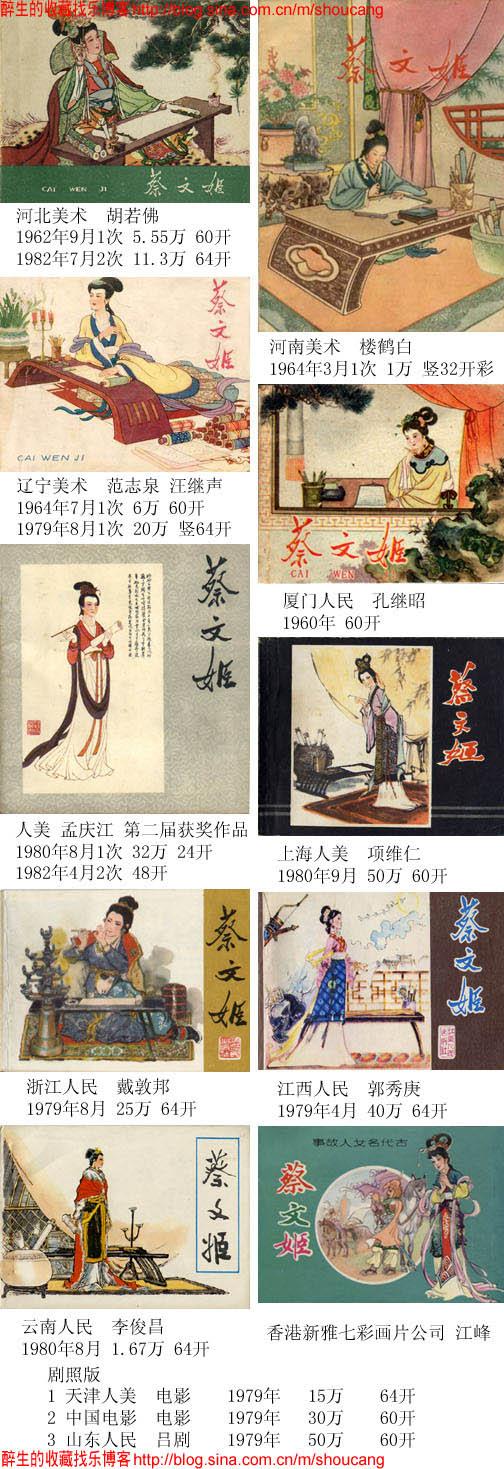 醉生的收藏找乐博客http://blog.sina.com.cn/m/shoucang
CAI WEN JI 蔡文姬
河北美术 胡若佛
1962年9月1次 5.55万 60开
1982年7月2次 11.3万 64开
蔡文姬
河南美术 楼鹤白
1964年3月1次 1万 竖32开彩
蔡文姬
CAI WEN JI
辽宁美术 范志泉 汪继声
1964年7月1次 6万 60开
1979年8月1次 20万 竖64开
蔡文姬
CAI WEN
厦门人民 孔继昭
1960年 60开
蔡文姬
人美 孟庆江 第二届获奖作品
1980年8月1次 32万 24开
1982年4月2次 48开
蔡文姬
上海人美 项维仁
1980年9月 50万 60开
蔡文姬
浙江人民 戴敦邦
1979年8月 25万 64开
蔡文姬
江西人民 郭秀庚
1979年4月 40万 64开
蔡文姬
云南人民 李俊昌
1980年8月 1.67万 64开
事故人女名代古
蔡文姬
香港新雅七彩画片公司 江峰
剧照版
1 天津人美 电影 1979年 15万 64开
2 中国电影 电影 1979年 30万 60开
3 山东人民 吕剧 1979年 50万 60开
醉生的收藏找乐博客http://blog.sina.com.cn/m/shoucang